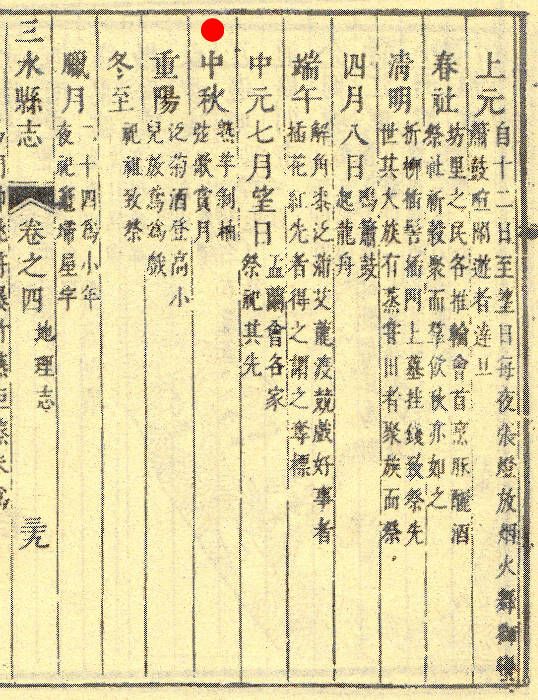 上元
自十二日至望日每夜張燈放烟火舞獅
簫鼓喧闐遊者達旦
春社
坊里之民各推輪會首烹豚釃酒
祭社祈穀聚而羣飲秋亦如之
清明
折柳插髻插門上墓挂錢致祭先
世其大族有蒸嘗田者聚族而祭
四月八日
鳴簫鼓
起龍舟
端午
解角黍泛蒲艾龍渡競戲好事者
插花紅先者得之謂之奪標
中元七月望日
盂蘭會各家
祭祀其先
中秋
熟芋剝柚
弦歌賞月
重陽
泛菊酒登高小
兒放鳶為戲
冬至
祀祖致祭
臘月
二十四為小年
夜祀竈掃屋宇
三水縣志 卷之四 地理志